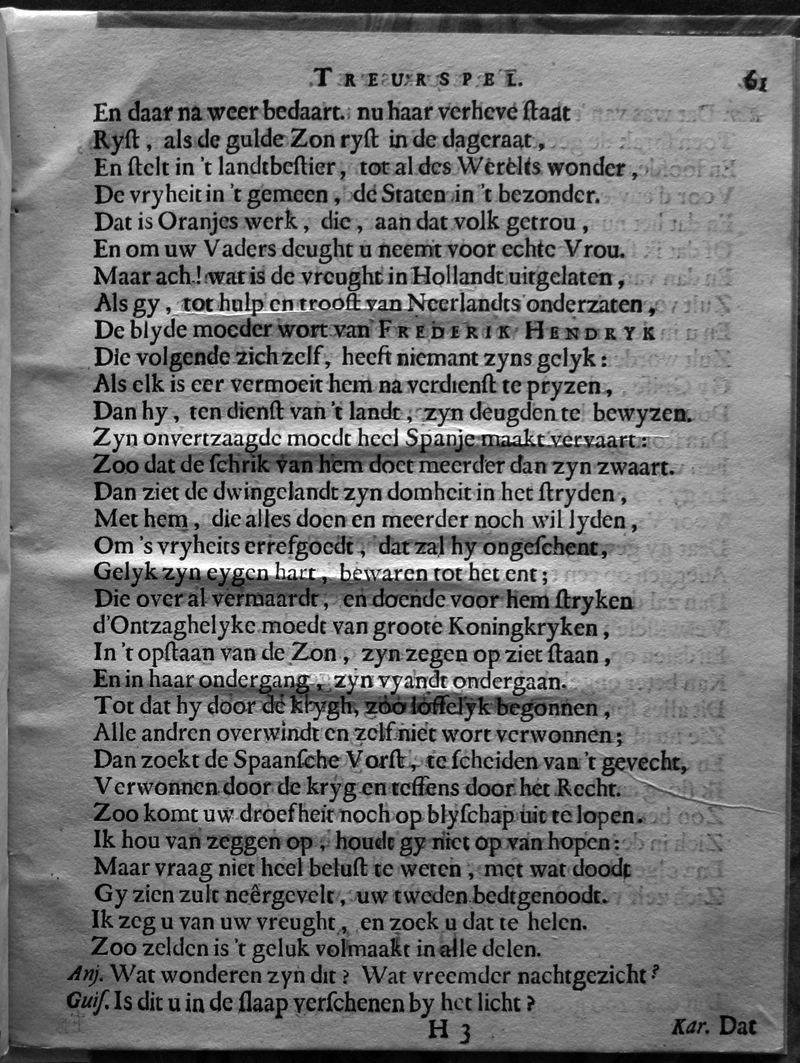 TREURSPEL. 61
En daar na weer bedaart. nu haar verheve ſtaat
Ryſt, als de gulde Zon ryſt in de dageraat,
En ſtelt in 't landtbeſtier, tot al des Wérélts wonder,
De vryheit in 't gemeen, de Staten in 't bezonder.
Dat is Oranjes werk, die, aan dat volk getrou,
En om uw Vaders deught u neemt voor echte Vrou.
Maar ach! wat is de vreught in Hollandt uitgelaten,
Als gy, tot hulp en trooſt van Neerlandts onderzaten,
De blyde moeder wort van FREDERIK HENDRYK
Die volgende zich zelf, heeft niemant zyns gelyk:
Als elk is eer vermoeit hem na verdienſt te pryzen,
Dan hy, ten dienſt van 't landt, zyn deugden te bewyzen.
Zyn onvertzaagde moedt heel Spanje maakt vervaart:
Zoo dat de ſchrik van hem doet meerder dan zyn zwaart.
Dan ziet de dwingelandt zyn domheit in het ſtryden,
Met hem, die alles doen en meerder noch wil lyden,
Om 's vryheits errefgoedt, dat zal hy ongeſchent,
Gelyk zyn eygen hart, bewaren tot het ent;
Die over al vermaardt, en doende voor hem ſtryken
d'Ontzaghelyke moedt van groote Koningkryken,
In 't opſtaan van de Zon, zyn zegen op ziet ſtaan,
En in haar ondergang, zyn vyandt ondergaan.
Tot dat hy door de krygh, zoo loffelyk begonnen,
Alle andren overwindt en zelf niet wort verwonnen;
Dan zoekt de Spaanſche Vorſt, te ſcheiden van 't gevecht,
Verwonnen door de kryg en teffens door het Recht.
Zoo komt uw droefheit noch op blyſchap uit te lopen.
Ik hou van zeggen op, houdt gy niet op van hopen:
Maar vraag niet heel beluſt te weten, met wat doodt
Gy zien zult neêrgevelt, uw tweden bedtgenoodt.
Ik zeg u van uw vreught, en zoek u dat te helen.
Zoo zelden is 't geluk volmaakt in alle delen.
Anj. Wat wonderen zyn dit? Wat vreemder nachtgezicht?
Guiſ. Is dit u in de ſlaap verſchenen by het licht?
H 3 Kar. Dat